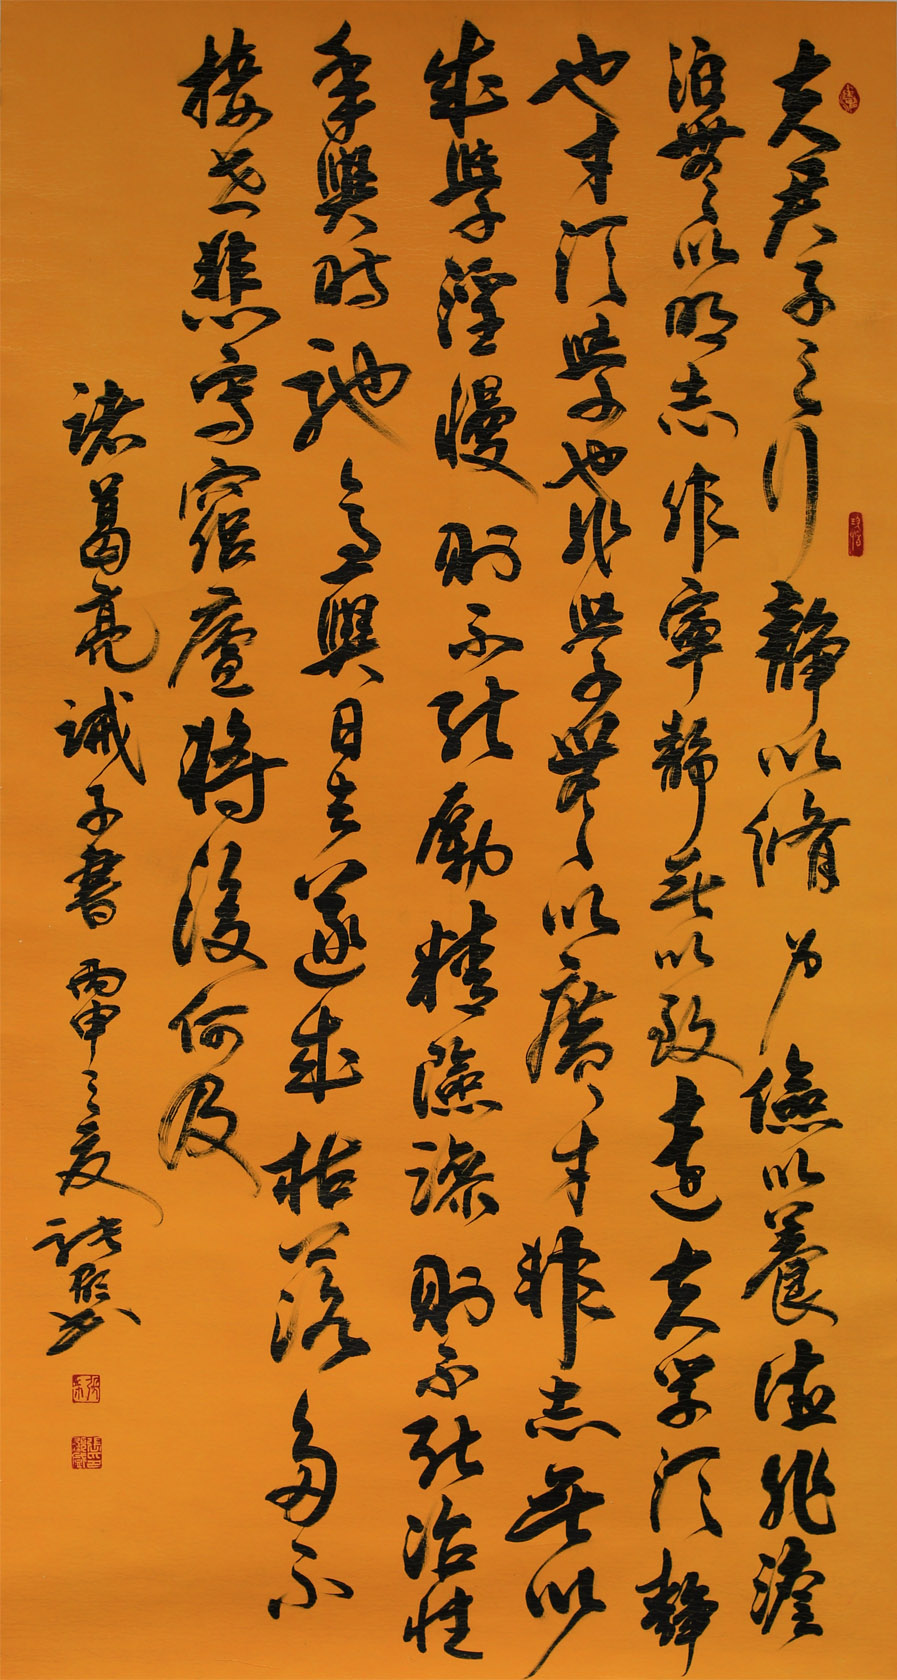 夫君子之行靜以脩身儉以養德非澹
泊無以明志非寧靜無以致遠夫學須靜
也才須學也非學無以廣才非志無以
成學淫慢則不能勵精險躁則不能冶性
年與時馳意與日去遂成枯落多不
接世悲守窮廬將復何及
諸葛亮誡子書丙申之夏張